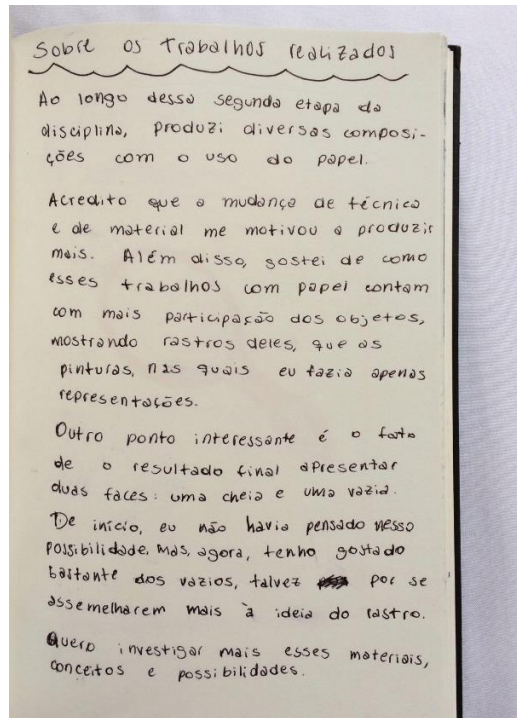 Sobre os trabalhos realizados
Ao longo dessa segunda etapa da
disciplina, produzi diversas composi-
ções com o uso do papel.
Acredito que a mudança de técnica
e de material me motivou a produzir
mais. Além disso, gostei de como
esses trabalhos com papel contam
com mais participação dos objetos,
mostrando rastros deles, que as
pinturas, nas quais eu fazia apenas
representações.
Outro ponto interessante é o fato
de o resultado final apresentar
duas faces: uma cheia e uma vazia.
De início, eu não havia pensado nessa
possibilidade, mas, agora, tenho gostado
bastante dos vazios, talvez por se
assemelharem mais à ideia do rastro.
Quero investigar mais esses materiais,
conceitos e possibilidades.